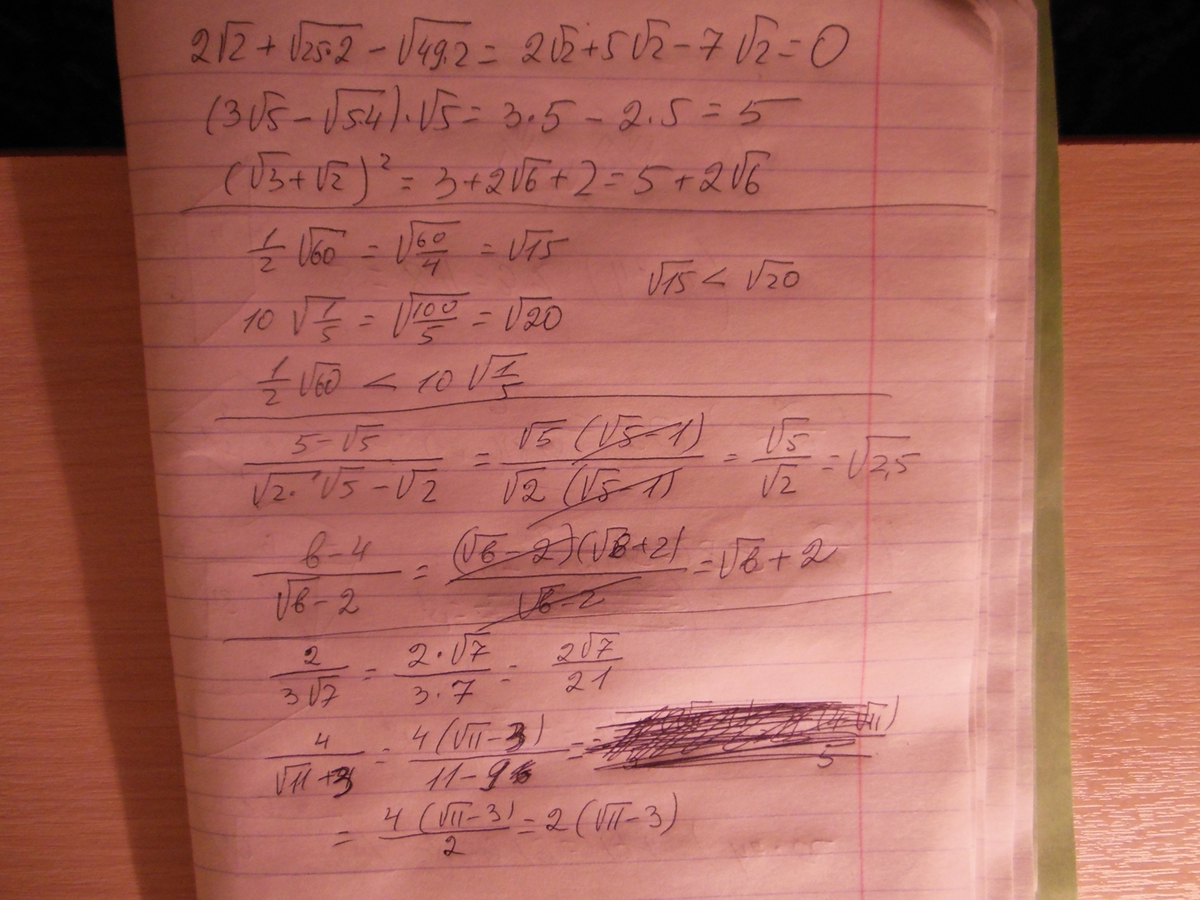 2√2 + √25·2 − √49·2 = 2√2 + 5√2 − 7√2 = 0
(3√5 − √5·4)·√5 = 3·5 − 2·5 = 5
(√3 + √2)² = 3 + 2√6 + 2 = 5 + 2√6
1/2 √60 = √60/4 = √15
√15 < √20
10 √1/5 = √100/5 = √20
1/2 √60 < 10 √1/5
(5 − √5)/(√2·√5 − √2) = √5 (√5 − 1)/√2 (√5 − 1) = √5/√2 = √2,5
(в − 4)/(√в − 2) = (√в − 2)(√в + 2)/(√в − 2) = √в + 2
2/3√7 = 2·√7/3·7 = 2√7/21
4/(√11 + 3) = 4(√11 − 3)/(11 − 9) =
= 4(√11 − 3)/2 = 2(√11 − 3)